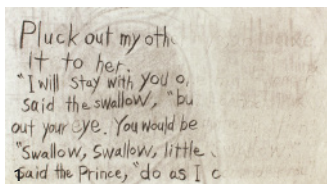 Pluck out my oth
it to her.
"I will stay with you o
said the swallow, "bu
out your eye. You would be
"Swallow, Swallow, little
said the Prince, "do as I c